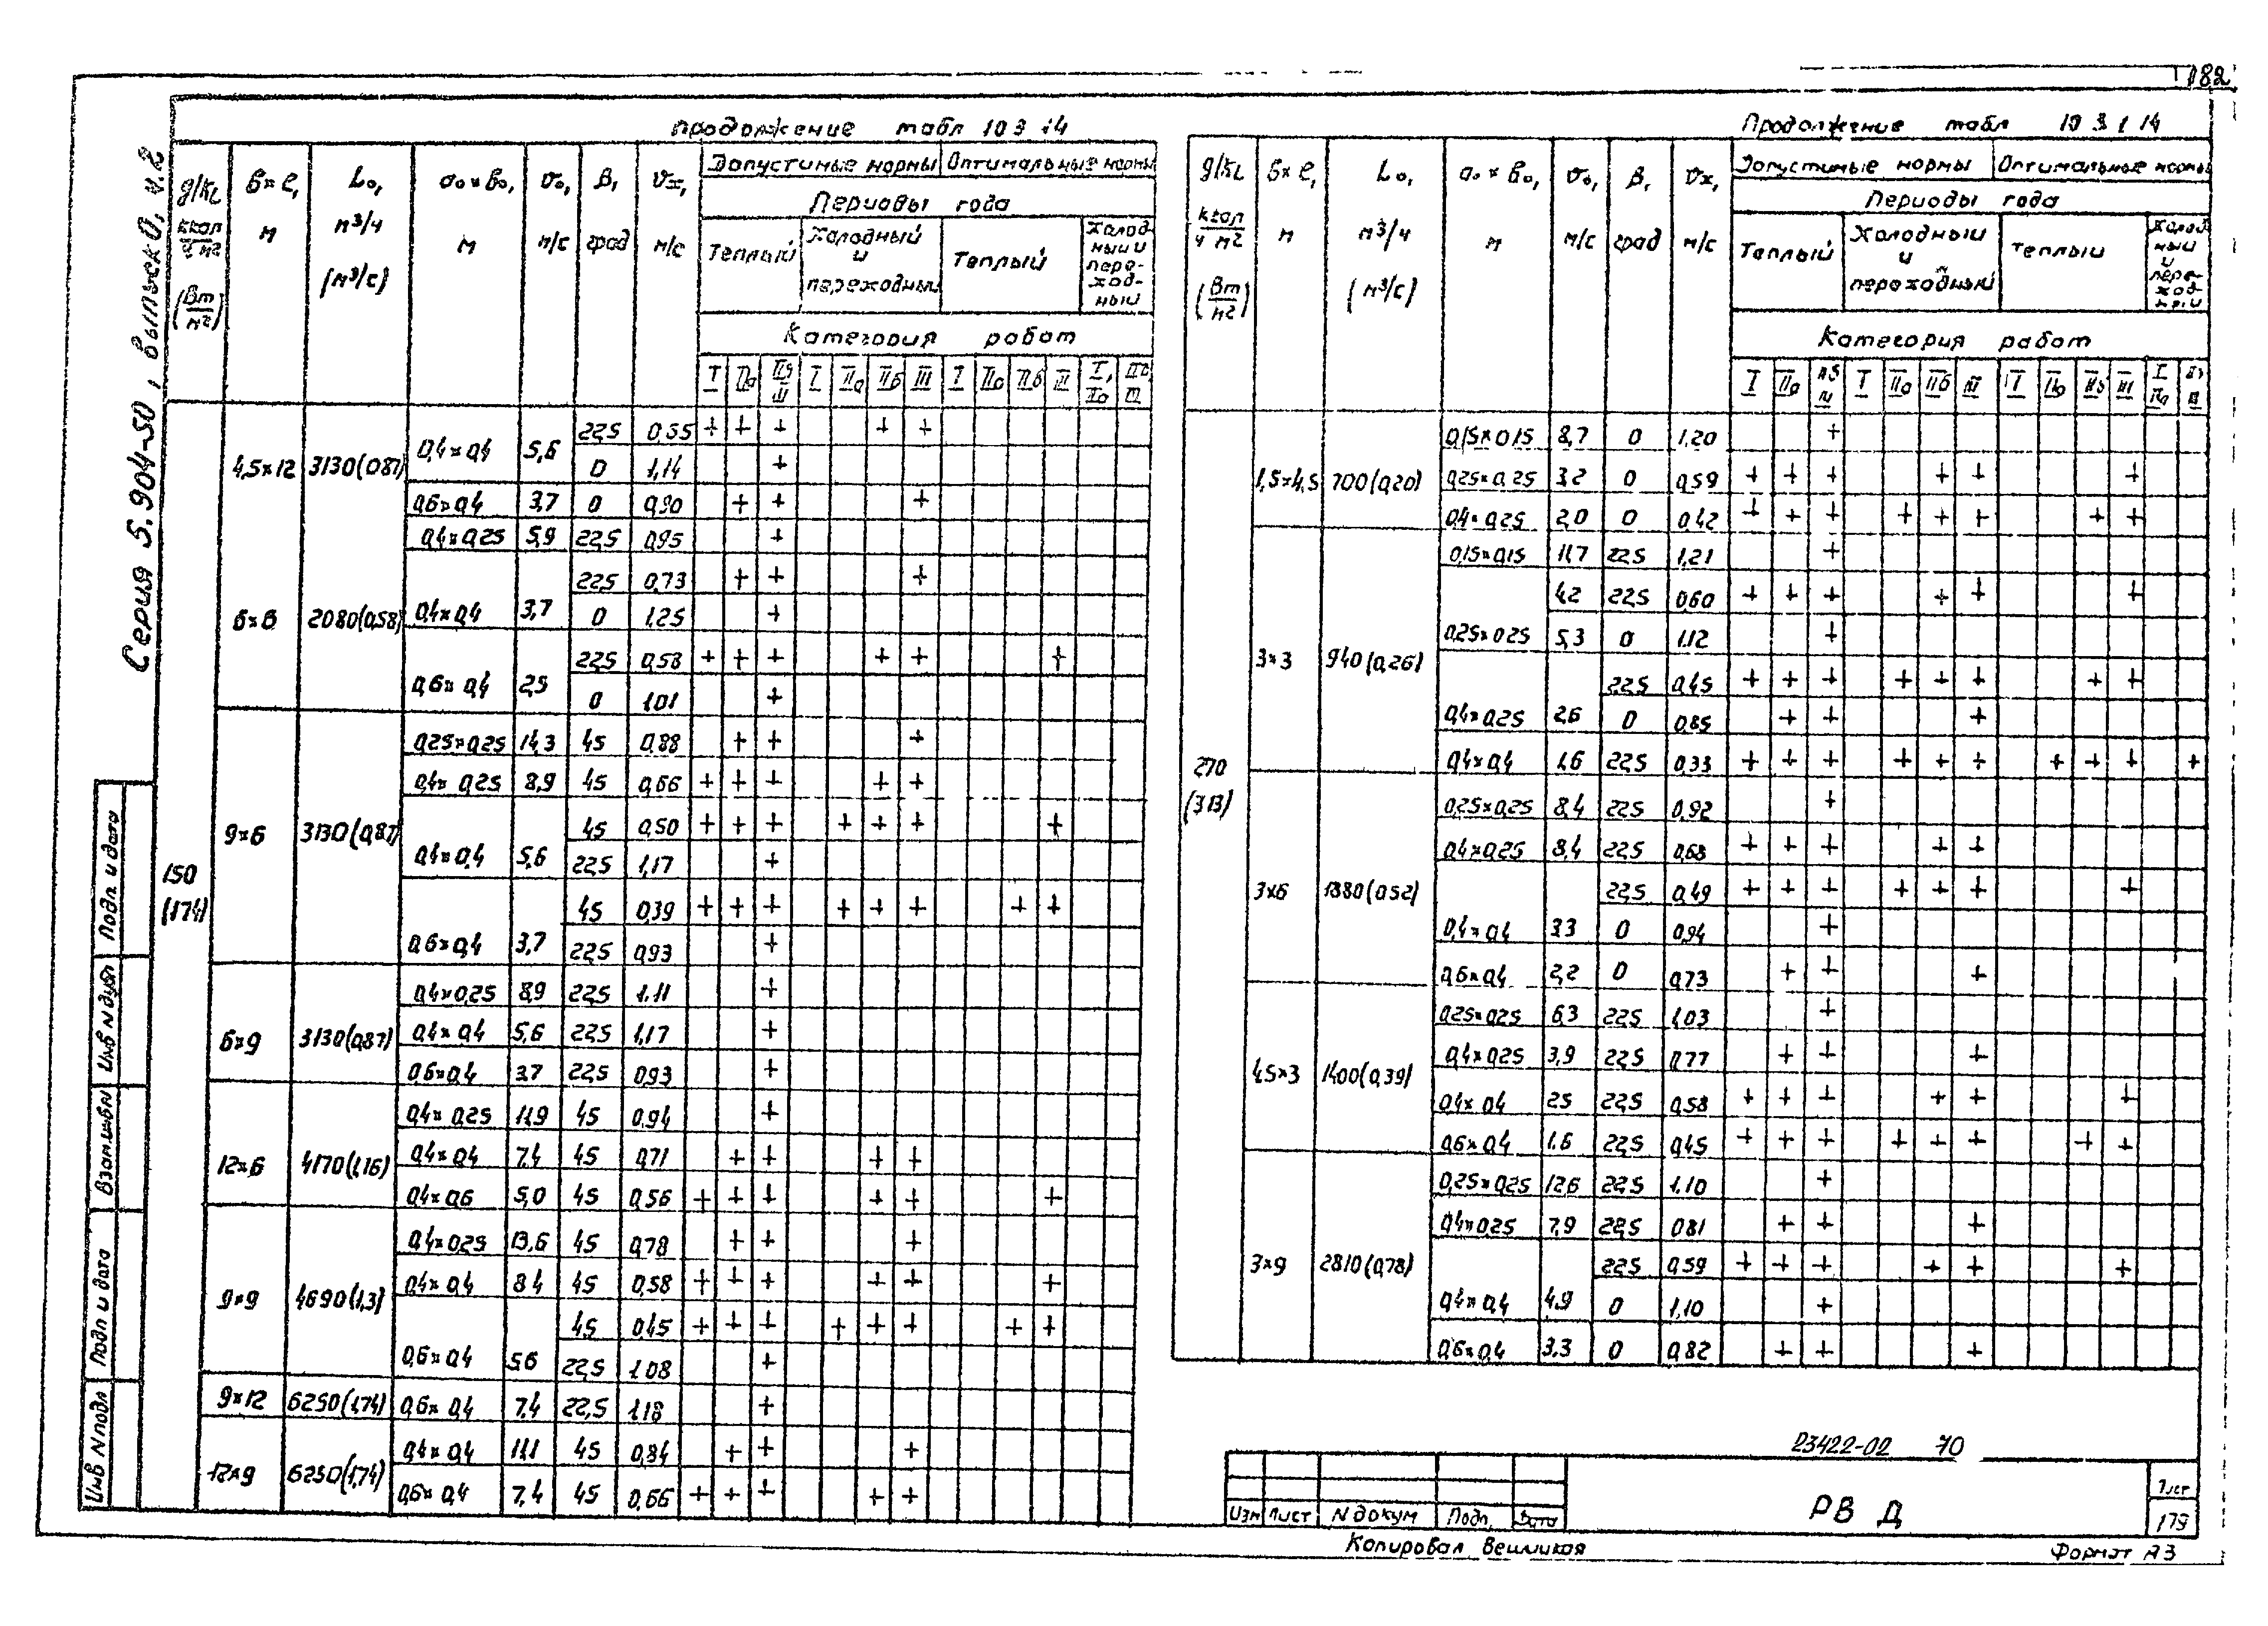 182
Серия 5.904-50, выпуск 0, ч.2
Продолжение табл 10 3 14
q/кL ккал/ч м2 (Вт/м2) | в×ℓ, м | L₀, м³/ч (м³/с) | а₀×в₀, м | υ₀, м/с | β, град | υх, м/с | Допустимые нормы | Оптимальные нормы
Периоды года
Теплый | Холодный и переходный | Теплый | Холодный и переходный
Категория работ
I | IIа | IIб III | I | IIа | IIб | III | I | IIа | IIб | III | I, IIа | IIб, III
150 (174)
4,5×12 | 3130(0,87) | 0,4×0,4 | 5,6 | 22,5 | 0,55 | + + + + +
0 | 1,14 | +
0,6×0,4 | 3,7 | 0 | 0,90 | + + +
6×6 | 2080(0,58) | 0,4×0,25 | 5,9 | 22,5 | 0,95 | +
0,4×0,4 | 3,7 | 22,5 | 0,73 | + + +
0 | 1,25 | +
0,6×0,4 | 2,5 | 22,5 | 0,58 | + + + + + +
0 | 1,01 | +
9×6 | 3130(0,87) | 0,25×0,25 | 14,3 | 45 | 0,88 | + + +
0,4×0,25 | 8,9 | 45 | 0,66 | + + + + +
0,4×0,4 | 5,6 | 45 | 0,50 | + + + + + + +
22,5 | 1,17 | +
0,6×0,4 | 3,7 | 45 | 0,39 | + + + + + + + +
22,5 | 0,93 | +
6×9 | 3130(0,87) | 0,4×0,25 | 8,9 | 22,5 | 1,11 | +
0,4×0,4 | 5,6 | 22,5 | 1,17 | +
0,6×0,4 | 3,7 | 22,5 | 0,93 | +
12×6 | 4170(1,16) | 0,4×0,25 | 11,9 | 45 | 0,94 | +
0,4×0,4 | 7,4 | 45 | 0,71 | + + + +
0,4×0,6 | 5,0 | 45 | 0,56 | + + + + + +
9×9 | 4690(1,3) | 0,4×0,25 | 13,6 | 45 | 0,78 | + + +
0,4×0,4 | 8,4 | 45 | 0,58 | + + + + + +
0,6×0,4 | 5,6 | 45 | 0,45 | + + + + + + + +
22,5 | 1,08 | +
9×12 | 6250(1,74) | 0,6×0,4 | 7,4 | 22,5 | 1,18 | +
12×9 | 6250(1,74) | 0,4×0,4 | 11,1 | 45 | 0,84 | + + +
0,6×0,4 | 7,4 | 45 | 0,66 | + + + + +
Продолжение табл 10 3.1 14
q/кL ккал/ч м2 (Вт/м2) | в×ℓ, м | L₀, м³/ч (м³/с) | а₀×в₀, м | υ₀, м/с | β, град | υх, м/с | Допустимые нормы | Оптимальные нормы
Периоды года
Теплый | Холодный и переходный | Теплый | Холодный и переходный
Категория работ
I | IIа | IIб IV | I | IIа | IIб | III | I | IIа | IIб | III | I IIа | IIб III
270 (313)
1,5×4,5 | 700(0,20) | 0,15×0,15 | 8,7 | 0 | 1,20 | +
0,25×0,25 | 3,2 | 0 | 0,59 | + + + + + +
0,4×0,25 | 2,0 | 0 | 0,42 | + + + + + + + +
3×3 | 940(0,26) | 0,15×0,15 | 11,7 | 22,5 | 1,21 | +
0,25×0,25 | 4,2 | 22,5 | 0,60 | + + + + + +
5,3 | 0 | 1,12 | +
0,4×0,25 | 2,6 | 22,5 | 0,45 | + + + + + + + +
0 | 0,85 | + + +
0,4×0,4 | 1,6 | 22,5 | 0,33 | + + + + + + + + + +
3×6 | 1880(0,52) | 0,25×0,25 | 8,4 | 22,5 | 0,92 | +
0,4×0,25 | 8,4 | 22,5 | 0,68 | + + + + +
0,4×0,4 | 3,3 | 22,5 | 0,49 | + + + + + + +
0 | 0,94 | +
0,6×0,4 | 2,2 | 0 | 0,73 | + + +
4,5×3 | 1400(0,39) | 0,25×0,25 | 6,3 | 22,5 | 1,03 | +
0,4×0,25 | 3,9 | 22,5 | 0,77 | + + +
0,4×0,4 | 2,5 | 22,5 | 0,58 | + + + + + +
0,6×0,4 | 1,6 | 22,5 | 0,45 | + + + + + + + +
3×9 | 2810(0,78) | 0,25×0,25 | 12,6 | 22,5 | 1,10 | +
0,4×0,25 | 7,9 | 22,5 | 0,81 | + + +
0,4×0,4 | 4,9 | 22,5 | 0,59 | + + + + + +
0 | 1,10 | +
0,6×0,4 | 3,3 | 0 | 0,82 | + + +
Подп. и дата
Инв N дубл
Взам.инв N
Подп и дата
Инв N подл
23422-02 70
Изм Лист N докум Подп. Дата
РВ Д
Лист
179
Копировал
Формат А3